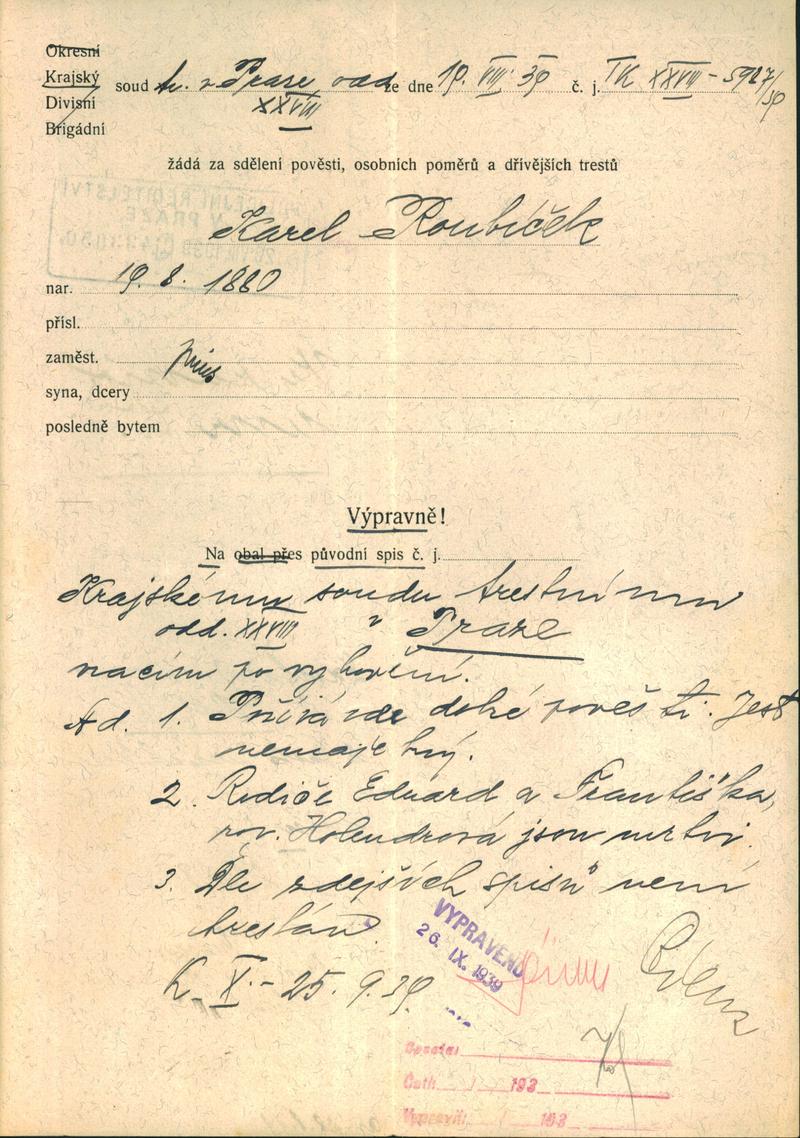 Okresní
Krajský soud tr. v Praze odd. ze dne 19. VIII. 39 č. j. TK XXVIII - 5927/39
Divisní XXVIII
Brigádní
žádá za sdělení pověsti, osobních poměrů a dřívějších trestů
Karel Roubíček
nar. 19. 8. 1880
přísl.
zaměst.
syna, dcery
posledně bytem
Výpravně!
Na obal přes původní spis č. j.
Krajskému soudu trestnímu
odd. XXVIII v Praze
vracím po vyhovění.
Ad. 1. Požívá zde dobré pověsti. Jest
nemajetný.
2. Rodiče Eduard a Františka,
roz. Holendrová jsou mrtvi.
3. Dle zdejších spisů není
trestán.
K. X. - 25. 9. 39
VYPRAVENO
26. IX. 1939
Opsota:
Četl: / / 193
Vypravil: / 193